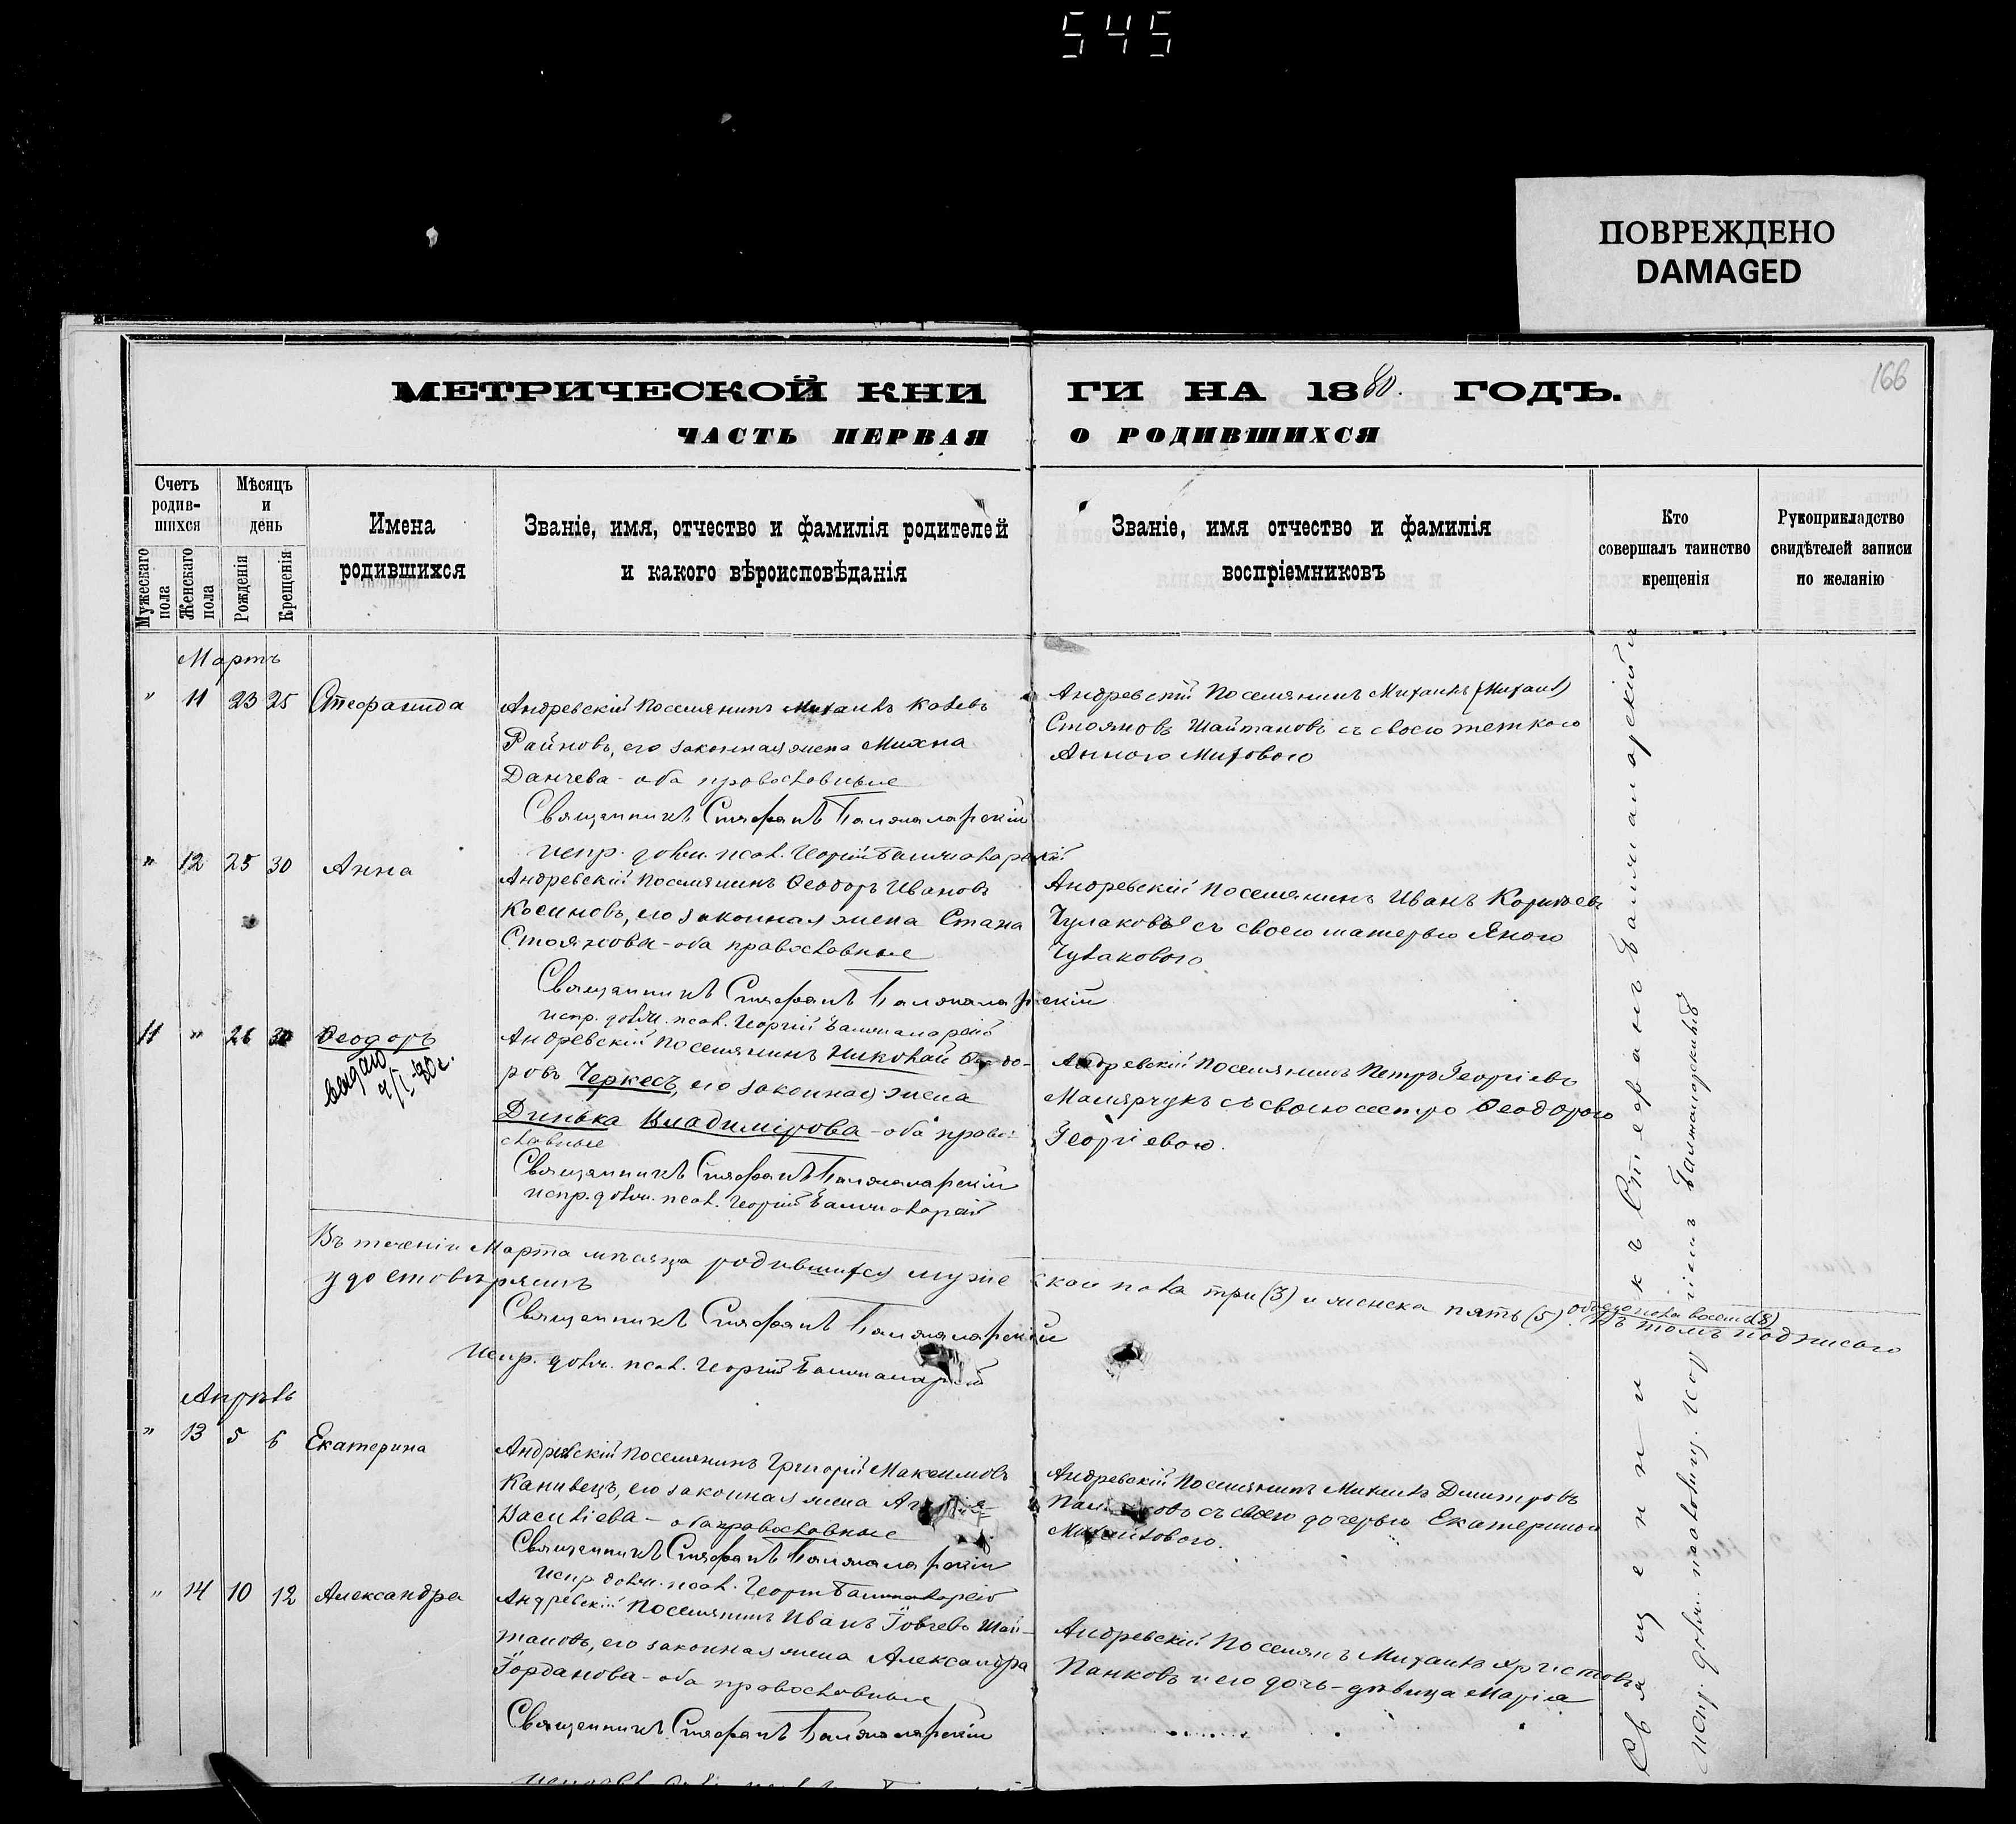 545
ПОВРЕЖДЕНО
DAMAGED
166
МЕТРИЧЕСКОЙ КНИГИ НА 1880. ГОДЪ.
ЧАСТЬ ПЕРВАЯ О РОДИВШИХСЯ
Счетъ родив-шихся
Мужескаго пола
Женскаго пола
Мѣсяцъ и день
Рожденія
Крещенія
Имена родившихся
Званіе, имя, отчество и фамилія родителей
и какого вѣроисповѣданія
Званіе, имя отчество и фамилія
воспріемниковъ
Кто
совершалъ таинство
крещенія
Рукоприкладство
свидѣтелей записи
по желанію
Мартъ
" 11 23 25 Стефанида
Андревскій Поселянинъ Михаилъ
Райновъ, его законная жена Михна
Данчева - оба православные
Священникъ Стефанъ Балжаларскій
испр. долж. псал. Георгій Балжаларскій
Андревскій Поселянинъ Михаилъ (Михаил)
Стояновъ Шайтановъ съ своею теткою
Анною Митовою
" 12 25 30 Анна
Андревскій Поселянинъ Ѳеодоръ Ивановъ
Косиновъ, его законная жена Стана
Стоянова - оба православные
Священникъ Стефанъ Балжаларскій
испр. долж. псал. Георгій Балжаларскій
Андревскій Поселянинъ Иванъ
Чулаковъ съ своею матерью Яною
Чулаковою
11 " 26 30 Ѳеодоръ
выдано
9/I-90 г.
Андревскій Поселянинъ Николай Ѳеодо-
ровъ Черкесъ, его законная жена
Динька Владимірова - оба право-
славные
Священникъ Стефанъ Балжаларскій
испр. долж. псал. Георгій Балжаларскій
Андревскій Поселянинъ Петръ Георгіевъ
Малярчукъ съ своею сестрою Ѳеодорою
Георгіевою.
Въ теченіи Марта мѣсяца родившихся мужескаго пола три (3) и женска пять (5) обоего пола восемь (8) Въ томъ подписомъ
удостовѣряемъ
Священникъ Стефанъ Балжаларскій
Испр. долж. псал. Георгій Балжаларскій
Апрѣль
" 13 5 6 Екатерина
Андревскій Поселянинъ Григорій Максимовъ
Канивецъ, его законная жена
Василіева - оба православные
Священникъ Стефанъ Балжаларскій
испр. долж. псал. Георгій Балжаларскій
Андревскій Поселянинъ Михаилъ Димитровъ
съ своею дочерью Екатериною
Михайловою.
" 14 10 12 Александра
Андревскій Поселянинъ Иванъ Іовчевъ Шай-
тановъ, его законная жена Александра
Іорданова - оба православные
Священникъ Стефанъ Балжаларскій
Андревскій Поселянъ Михаилъ Христовъ
Панковъ и его дочь - дѣвица Марія
Священникъ Стефанъ Балжаларскій
испр. долж. псаломщ. Георгій Балжаларскій